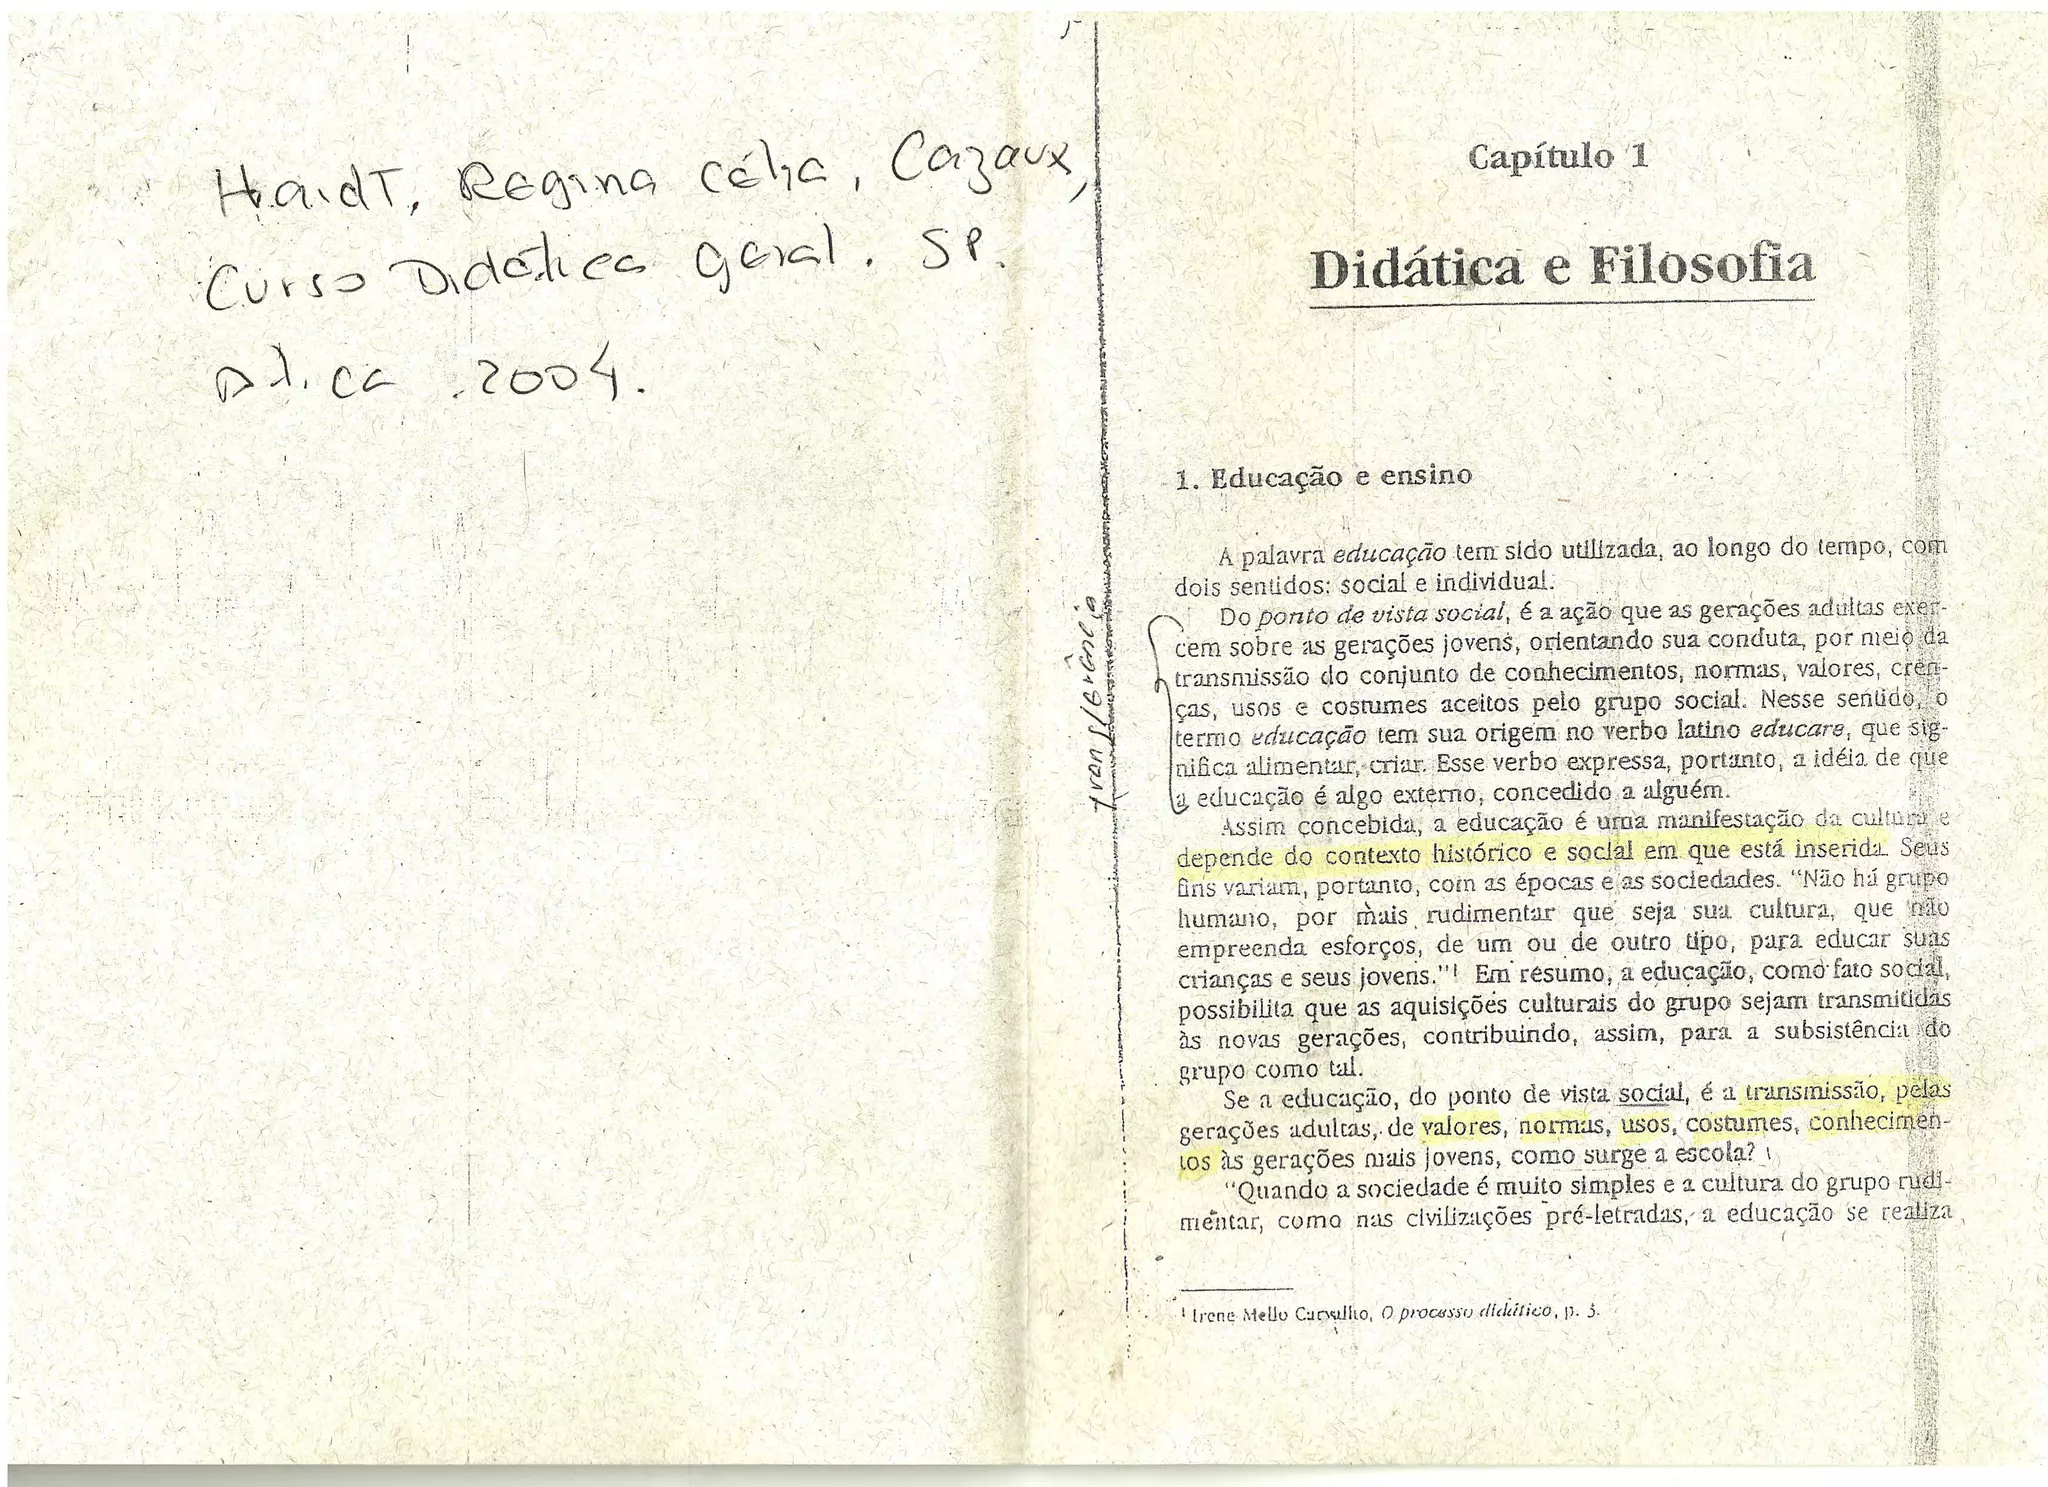 HaidT, Regina Célia, Cazaux,
Curso Didática Geral. SP.
Atica. 2004.
transferência
Capítulo 1
Didática e Filosofia
1. Educação e ensino
A palavra educação tem sido utilizada, ao longo do tempo, com
dois sentidos: social e individual.
Do ponto de vista social, é a ação que as gerações adultas exer-
cem sobre as gerações jovens, orientando sua conduta, por meio da
transmissão do conjunto de conhecimentos, normas, valores, cren-
ças, usos e costumes aceitos pelo grupo social. Nesse sentido, o
termo educação tem sua origem no verbo latino educare, que sig-
nifica alimentar, criar. Esse verbo expressa, portanto, a idéia de que
a educação é algo externo, concedido a alguém.
Assim concebida, a educação é uma manifestação da cultura e
depende do contexto histórico e social em que está inserida. Seus
fins variam, portanto, com as épocas e as sociedades. "Não há grupo
humano, por mais rudimentar que seja sua cultura, que não
empreenda esforços, de um ou de outro tipo, para educar suas
crianças e seus jovens."¹ Em resumo, a educação, como fato social,
possibilita que as aquisições culturais do grupo sejam transmitidas
às novas gerações, contribuindo, assim, para a subsistência do
grupo como tal.
Se a educação, do ponto de vista social, é a transmissão, pelas
gerações adultas, de valores, normas, usos, costumes, conhecimen-
tos às gerações mais jovens, como surge a escola?
"Quando a sociedade é muito simples e a cultura do grupo rudi-
mentar, como nas civilizações pré-letradas, a educação se realiza
¹ Irene Mello Carvalho, O processo didático, p. 3.